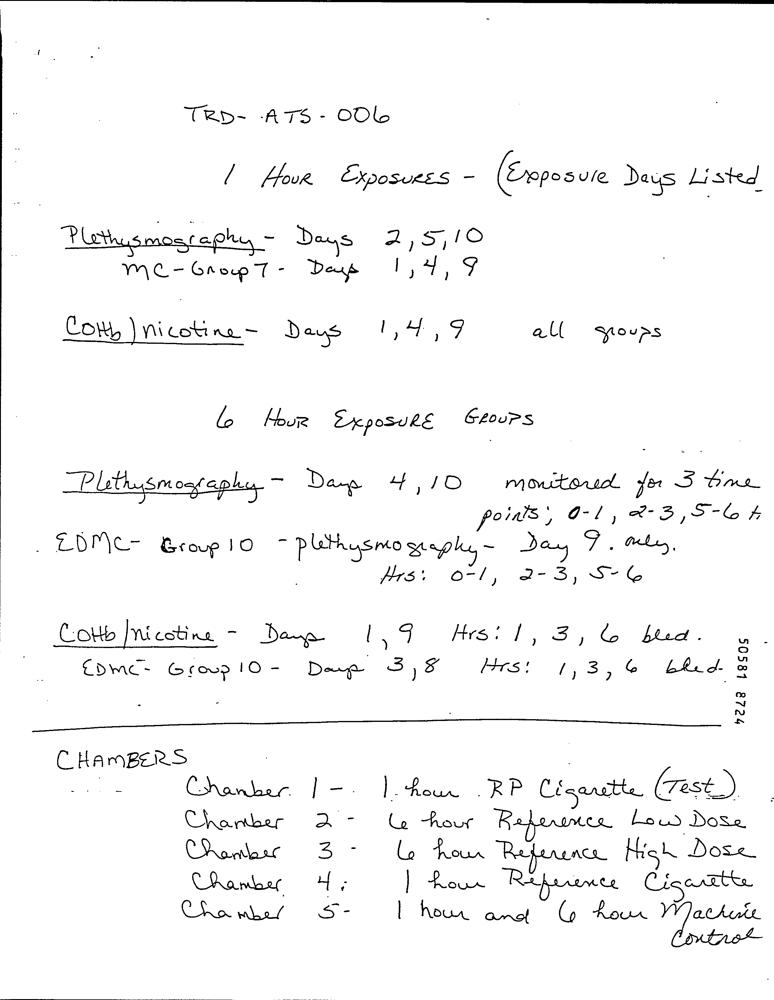 TRD-ATS-006
1 Hour Exposures - (Exposure Days Listed
Plethysmography - Days 2,5,10
MC-Group 7 - Days 1,4,9
COHb/nicotine - Days 1,4,9 all groups
6 Hour Exposure Groups
Plethysmography - Days 4,10 monitored for 3 time
points; 0-1, 2-3, 5-6 h
EDMC- Group 10 - plethysmography - Day 9. only.
Hrs: 0-1, 2-3, 5-6
COHb/nicotine - Days 1,9 Hrs: 1, 3, 6 bled.
EDMC- Group 10 - Days 3,8 Hrs: 1,3,6 bled.
50581 8724
CHAMBERS
Chamber 1 - 1 hour RP Cigarette (Test)
Chamber 2 - 6 hour Reference Low Dose
Chamber 3 - 6 hour Reference High Dose
Chamber 4: 1 hour Reference Cigarette
Chamber 5- 1 hour and 6 hour Machine
Control